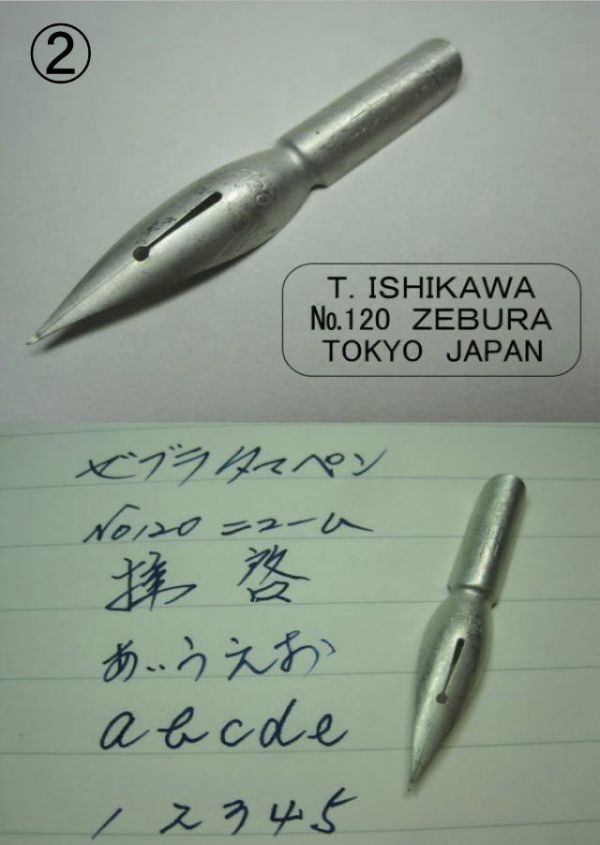 ②
T. ISHIKAWA
No.120 ZEBURA
TOKYO JAPAN
ゼブラタマペン
No120 ニューム
拝啓
あいうえお
abcde
12345